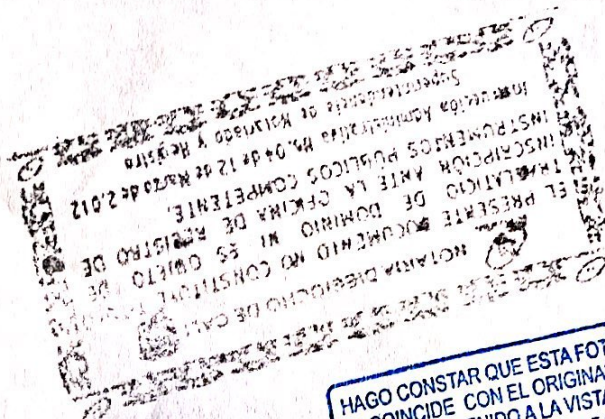 NOTARIA DIECIOCHO DE CALI
EL PRESENTE DOCUMENTO NO CONSTITUYE
TRASLATICIO DE DOMINIO NI ES OBJETO DE
INSCRIPCIÓN ANTE LA OFICINA DE REGISTRO DE
INSTRUMENTOS PUBLICOS COMPETENTE.
Instrucción Administrativa No. 04 de 12 de Marzo de 2,012
Superintendencia de Notariado y Registro
HAGO CONSTAR QUE ESTA
COINCIDE CON EL
A LA VISTA